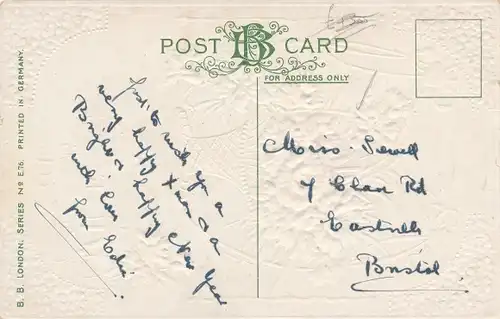 POST CARD
FOR ADDRESS ONLY
B. B. LONDON, SERIES No E.76. PRINTED IN GERMANY.
Just to wish you a
very happy Xmas & a
Bright & happy New Year
with love
from Edie.
Miss. Sewell
7 Chan Rd
Eastville
Bristol.